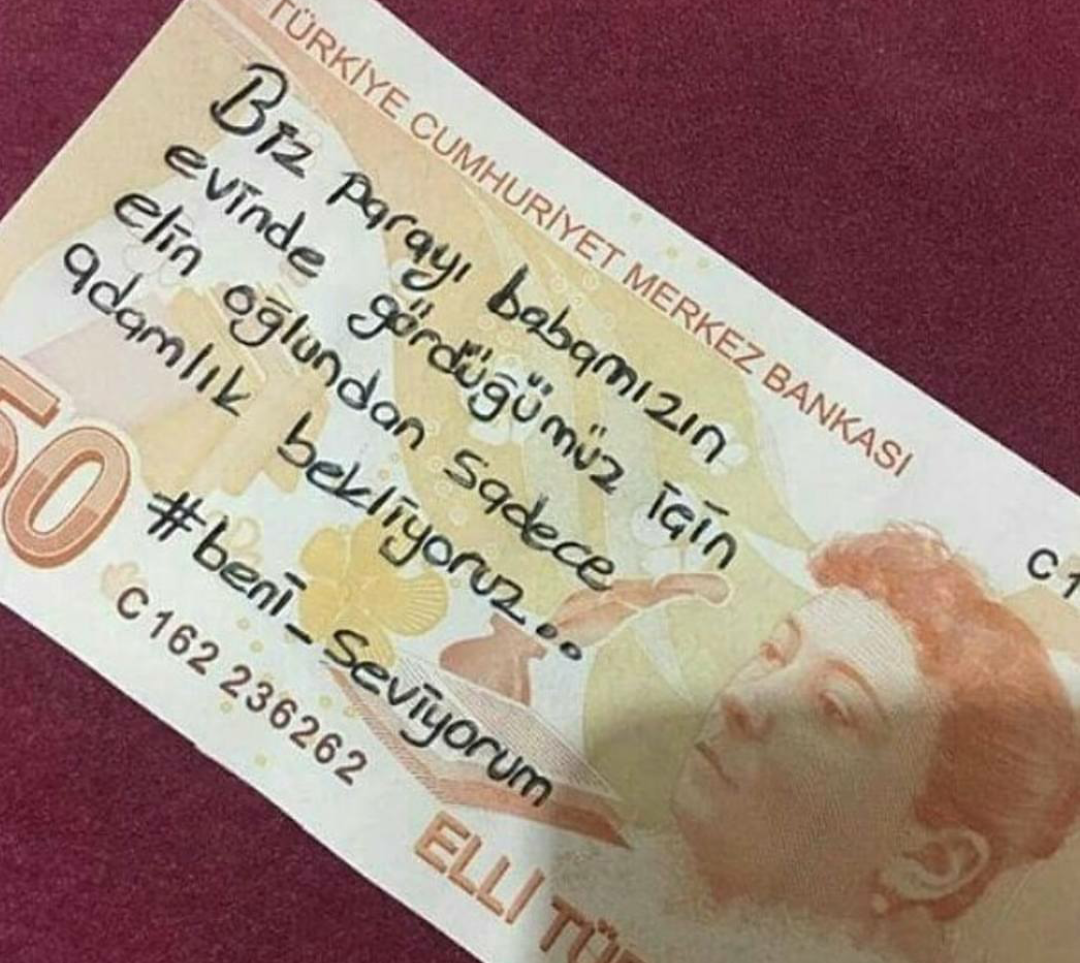 TÜRKİYE CUMHURİYET MERKEZ BANKASI
Biz parayı babamızın
evinde gördüğümüz için
elin oğlundan sadece
adamlık bekliyoruz...
#beni_seviyorum
50
C162 236262
C1
ELLİ TÜR